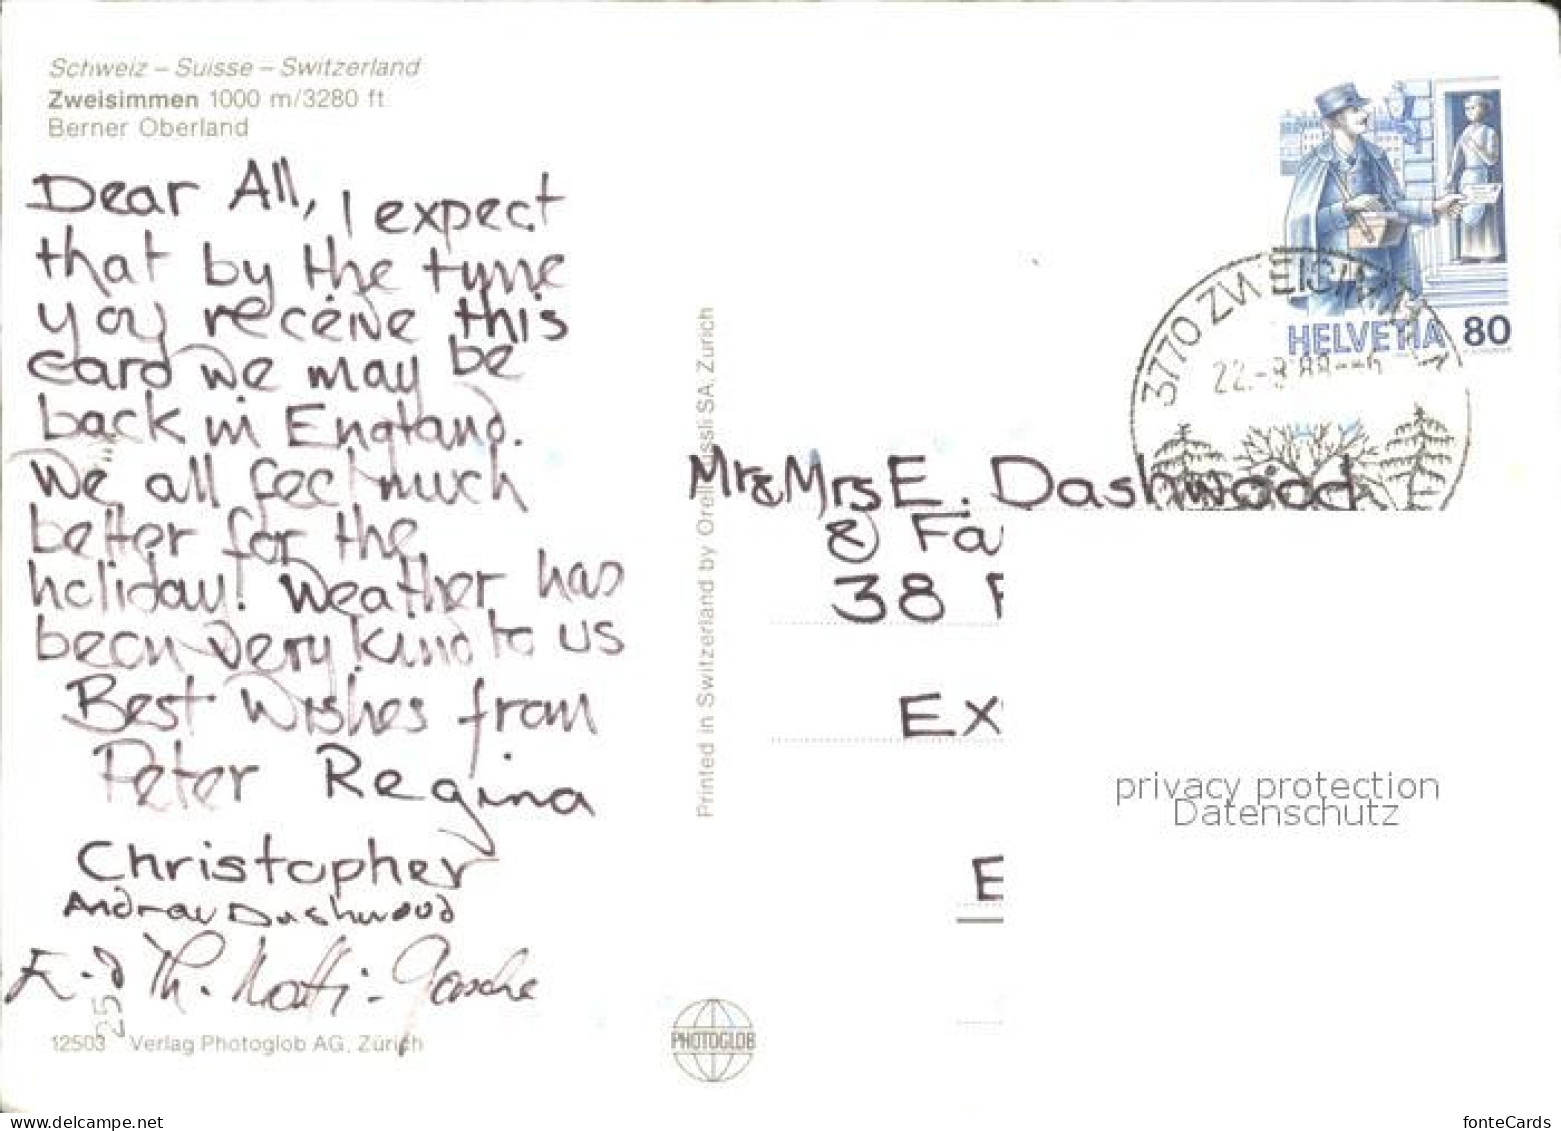 Schweiz – Suisse – Switzerland
Zweisimmen 1000 m/3280 ft.
Berner Oberland
Dear All, I expect
that by the tyme
you receive this
card we may be
back in England.
We all feel much
better for the
holiday! Weather has
been very kind to us
Best Wishes from
Peter Regina
Christopher
Andrew Dashwood
Th.
12503 Verlag Photoglob AG, Zürich
25
Printed in Switzerland by Orell Füssli SA, Zürich
PHOTOGLOB
HELVETIA 80
3770 ZWEISIMMEN
22.-8.88--
Mr & Mrs E. Dashwood
& Fa
38
EX
E
privacy protection
Datenschutz
www.delcampe.net
fonteCards